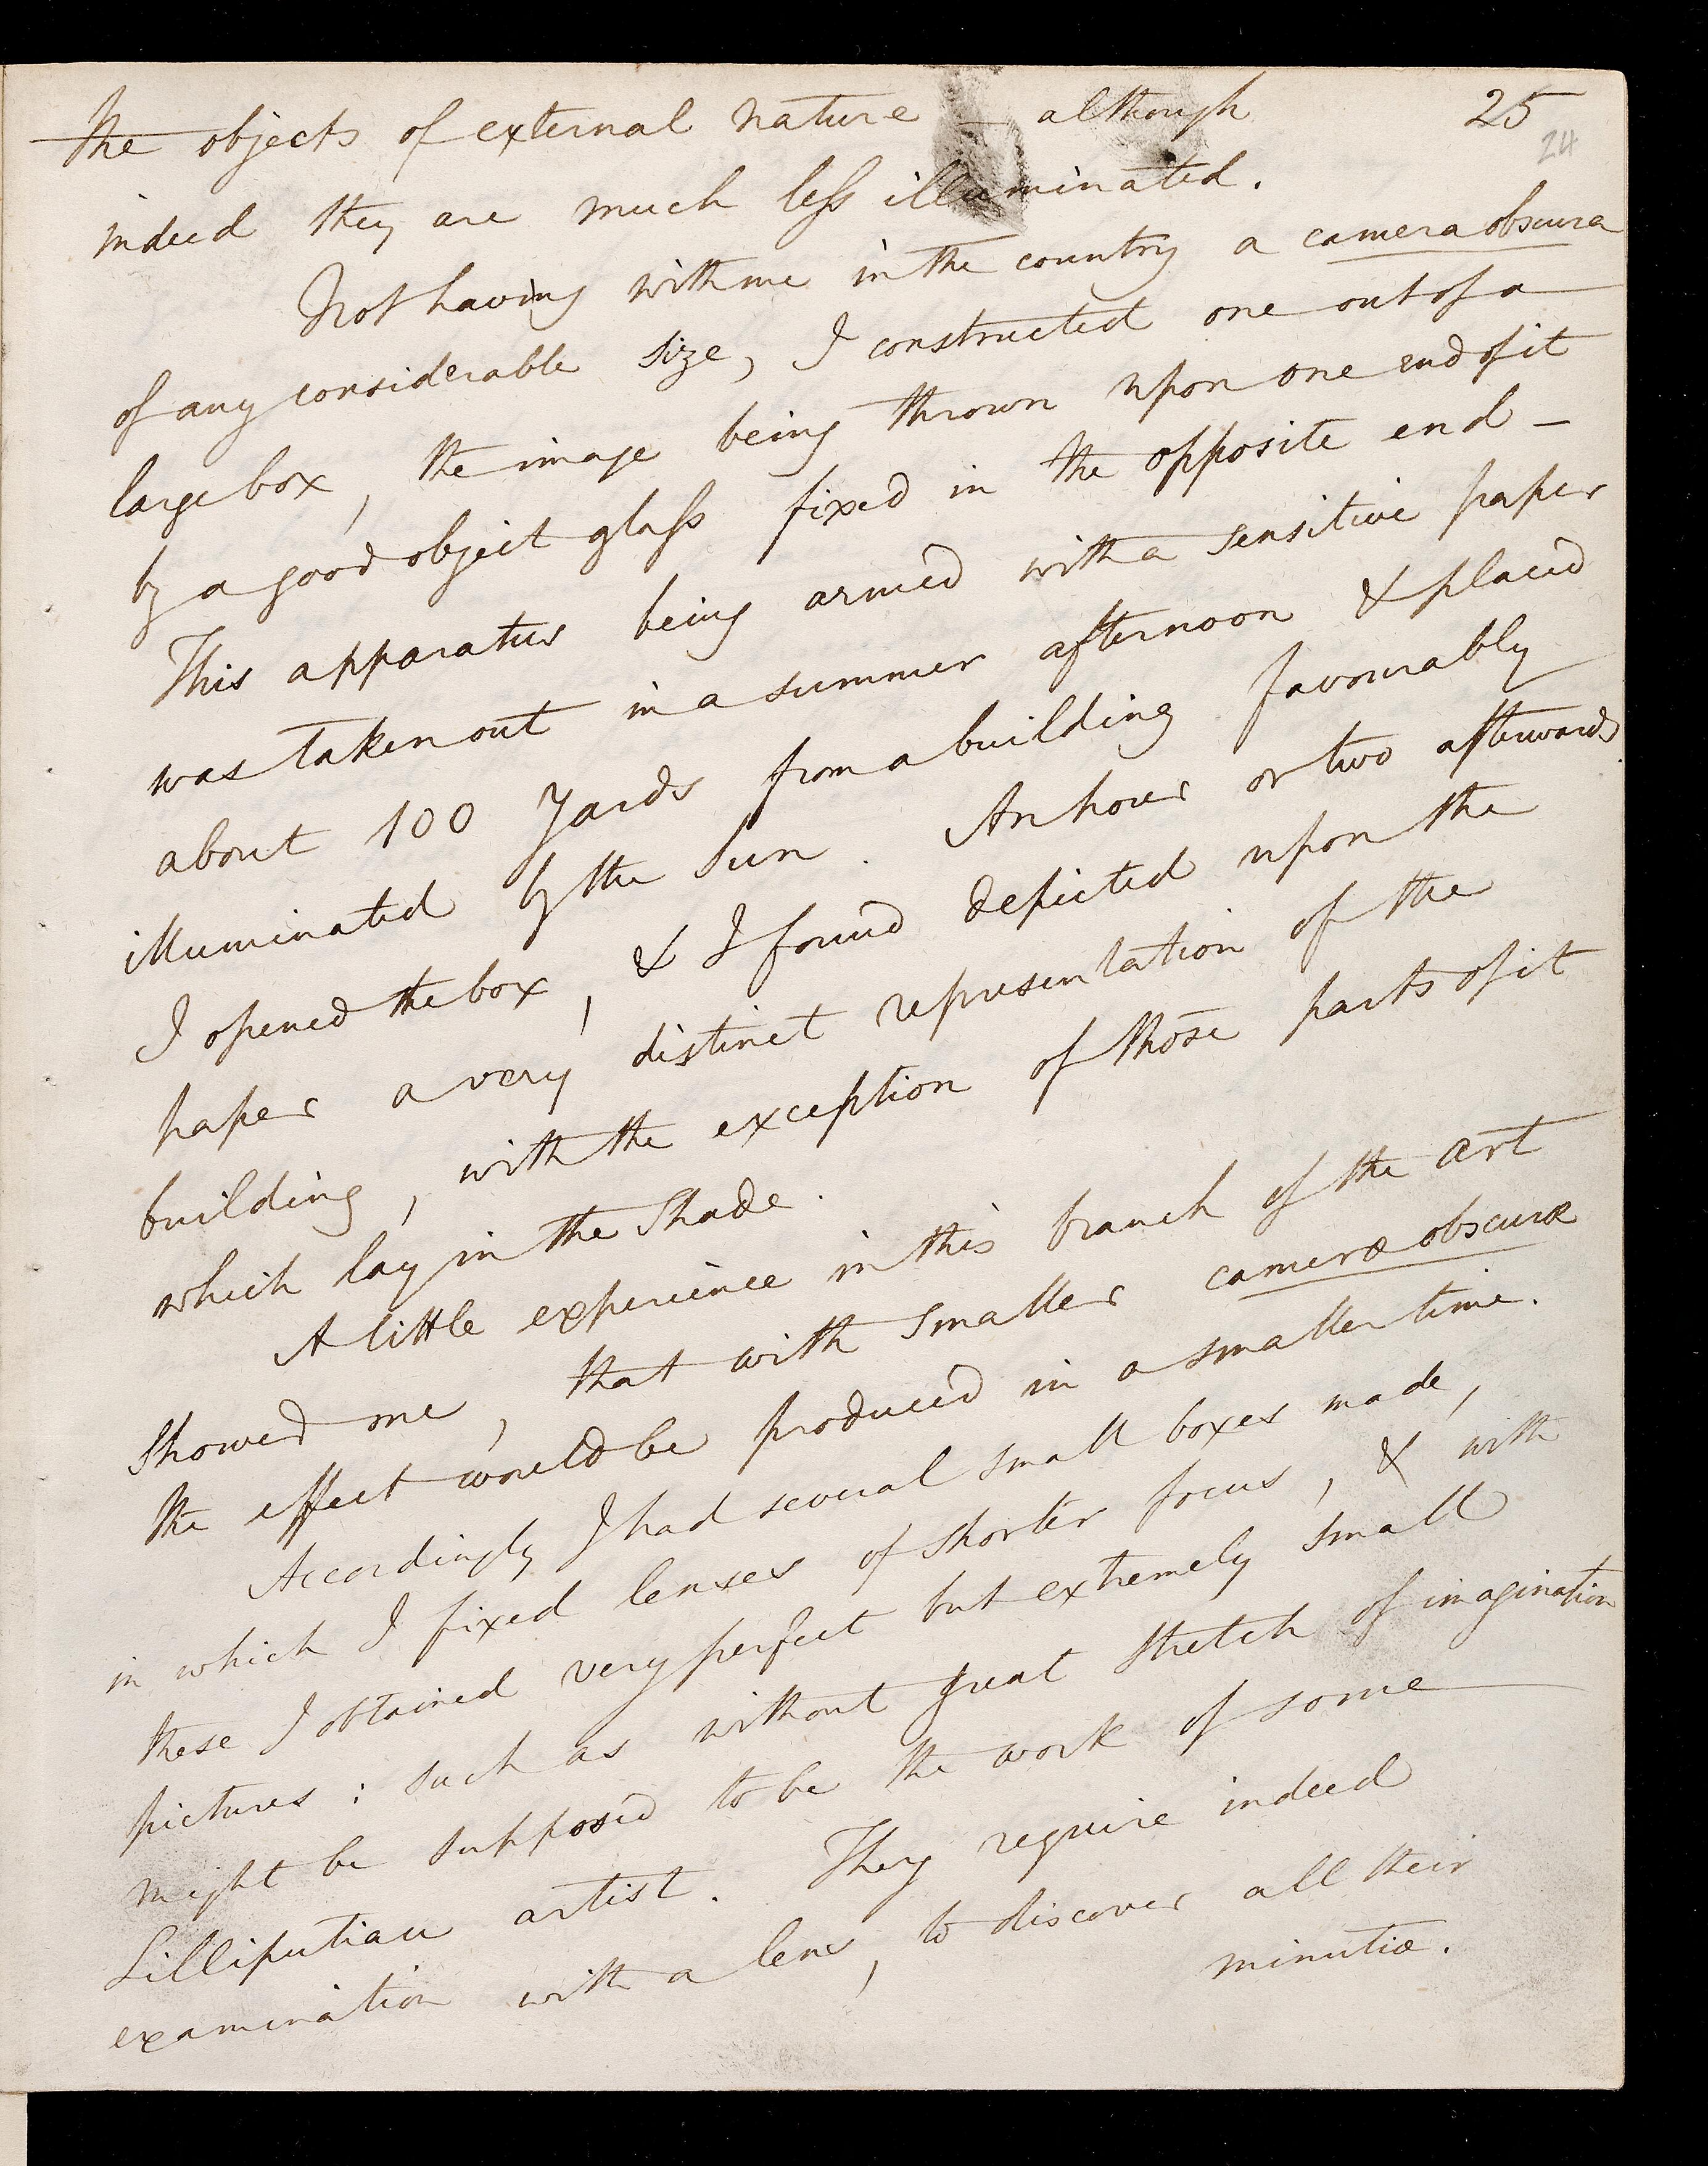 the objects of external nature — although 25
24
indeed they are much less illuminated.
Not having with me in the country a camera obscura
of any considerable size, I constructed one out of a
large box, the image being thrown upon one end of it
by a good object glass fixed in the opposite end —
This apparatus being armed with a sensitive paper
was taken out in a summer afternoon & placed
about 100 yards from a building favourably
illuminated by the Sun. An hour or two afterwards
I opened the box, & I found depicted upon the
paper a very distinct representation of the
building, with the exception of those parts of it
which lay in the Shade.
A little experience in this branch of the art
showed me, that with smaller cameræ obscuræ
the effect would be produced in a smaller time.
Accordingly I had several small boxes made,
in which I fixed lenses of shorter focus, & with
these I obtained very perfect but extremely small
pictures: such as without great stretch of imagination
might be supposed to be the work of some
Lilliputian artist. They require indeed
examination with a lens, to discover all their
minutiæ.